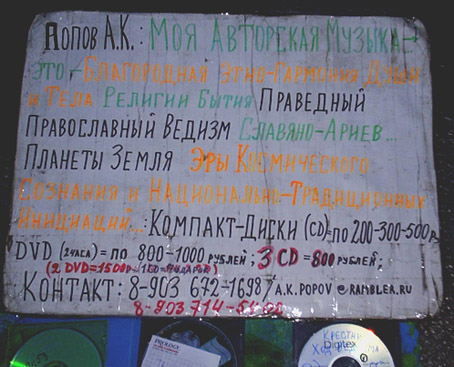 Попов А.К.: Моя Авторская Музыка –
это – Благородная Этно-Гармония Души
и Тела Религии Бытия Праведный
Православный Ведизм Славяно-Ариев...
Планеты Земля Эры Космического
Сознания и Национально-Традиционных
Инициаций...: Компакт-Диски (CD)=по 200-300-500р
DVD (2 часа) = по 800-1000 рублей; 3 CD = 800 рублей;
(2 DVD=1500р + 1CD=подарок)
Контакт: 8-903 672-1698 / A.K.POPOV@RAMBLER.RU
8-903 714-54
PROLOGY
Digitex